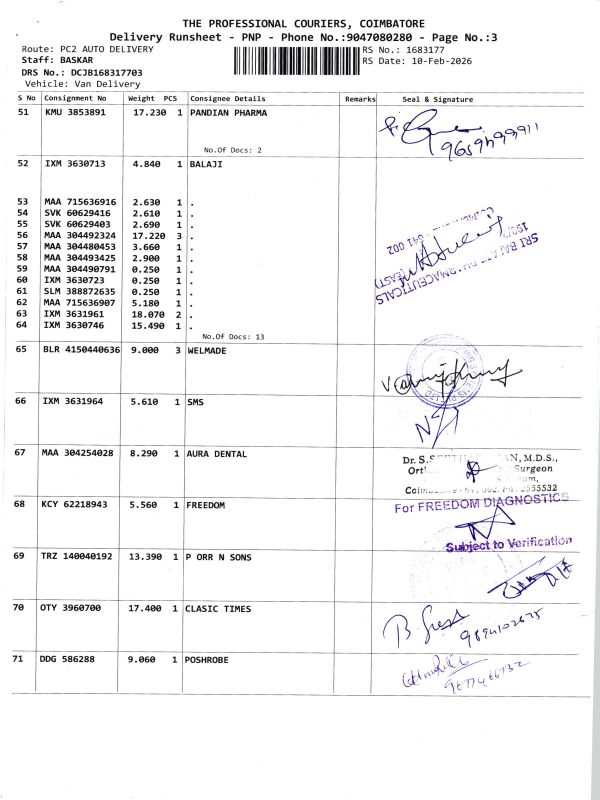 THE PROFESSIONAL COURIERS, COIMBATORE
Delivery Runsheet - PNP - Phone No.:9047080280 - Page No.:3
Route: PC2 AUTO DELIVERY
RS No.: 1683177
Staff: BASKAR
RS Date: 10-Feb-2026
DRS No.: DCJB168317703
Vehicle: Van Delivery
S No Consignment No Weight PCS Consignee Details Remarks Seal & Signature
51 KMU 3853891 17.230 1 PANDIAN PHARMA
No.Of Docs: 2
52 IXM 3630713 4.840 1 BALAJI
53 MAA 715636916 2.630 1 .
54 SVK 60629416 2.610 1 .
55 SVK 60629403 2.690 1 .
56 MAA 304492324 17.220 3 .
57 MAA 304480453 3.660 1 .
58 MAA 304493425 2.900 1 .
59 MAA 304490791 0.250 1 .
60 IXM 3630723 0.250 1 .
61 SLM 388872635 0.250 1 .
62 MAA 715636907 5.180 1 .
63 IXM 3631961 18.070 2 .
64 IXM 3630746 15.490 1 .
No.Of Docs: 13
65 BLR 4150440636 9.000 3 WELMADE
66 IXM 3631964 5.610 1 SMS
67 MAA 304254028 8.290 1 AURA DENTAL
Dr. S. AN, M.D.S.,
Surgeon
68 KCY 62218943 5.560 1 FREEDOM
For FREEDOM DIAGNOSTICS
Subject to Verification
69 TRZ 140040192 13.390 1 P ORR N SONS
70 OTY 3960700 17.400 1 CLASIC TIMES
71 DDG 586288 9.060 1 POSHROBE